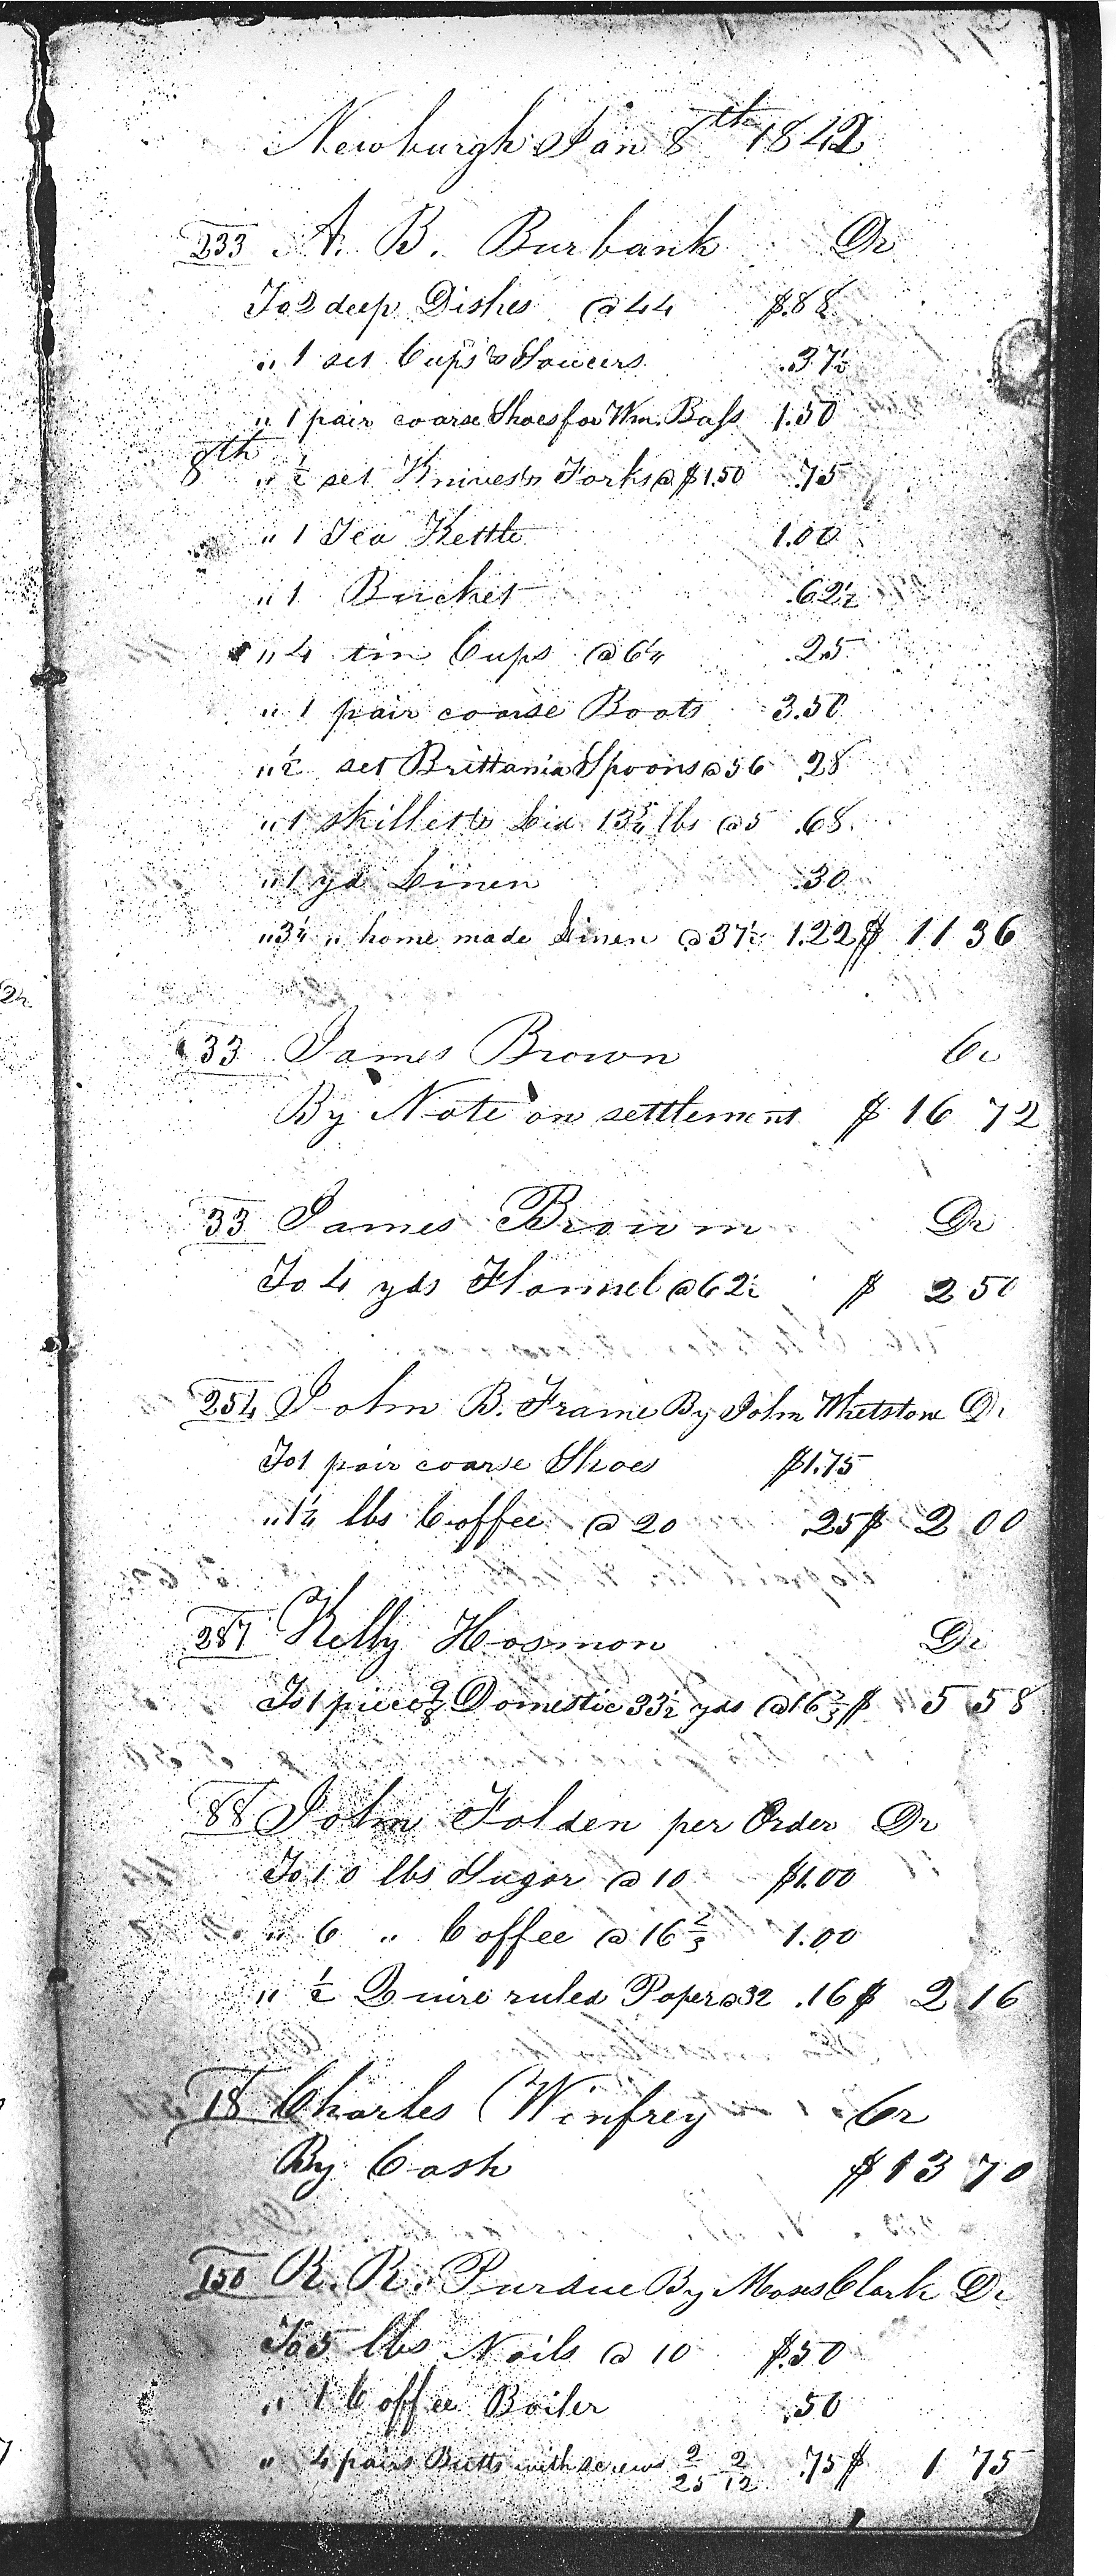 Newburgh Jan 8th 1842
233 A. B. Burbank Dr
To 2 deep Dishes @ 44 $.88
" 1 set Cups & Saucers .37½
" 1 pair coarse Shoes for Wm. Bass 1.50
8th " ½ set Knives & Forks @ $1.50 .75
" 1 Tea Kettle 1.00
" 1 Bucket .62½
" 4 tin Cups @ 6¼ .25
" 1 pair coarse Boots 3.50
" ½ set Brittania Spoons @ 56 .28
" 1 skillet & Lid 13¾ lbs @ 5 .68
" 1 yd Linen .30
" 3¼ " home made Linen @ 37½ 1.22 $ 11 36
33 James Brown Cr
By Note on settlement $ 16 72
33 James Brown Dr
To 4 yds Flannel @ 62½ $ 2 50
254 John B. Frame By John Whetstone Dr
To 1 pair coarse Shoes $1.75
" 1¼ lbs Coffee @ 20 .25 $ 2 00
287 Kelly Hosmon Dr
To 1 piece Domestic 33½ yds @ 16⅔ $ 5 58
88 John Folden per Order Dr
To 10 lbs Sugar @ 10 $1.00
" 6 " Coffee @ 16⅔ 1.00
" ½ Quire ruled Paper @ 32 .16 $ 2 16
18 Charles Winfrey Cr
By Cash $ 13 70
150 R. R. Purdue By Moses Clark Dr
To 5 lbs Nails @ 10 $.50
" 1 Coffee Boiler .50
" 4 pairs Butts with screws 2/25 2/12 .75 $ 1 75